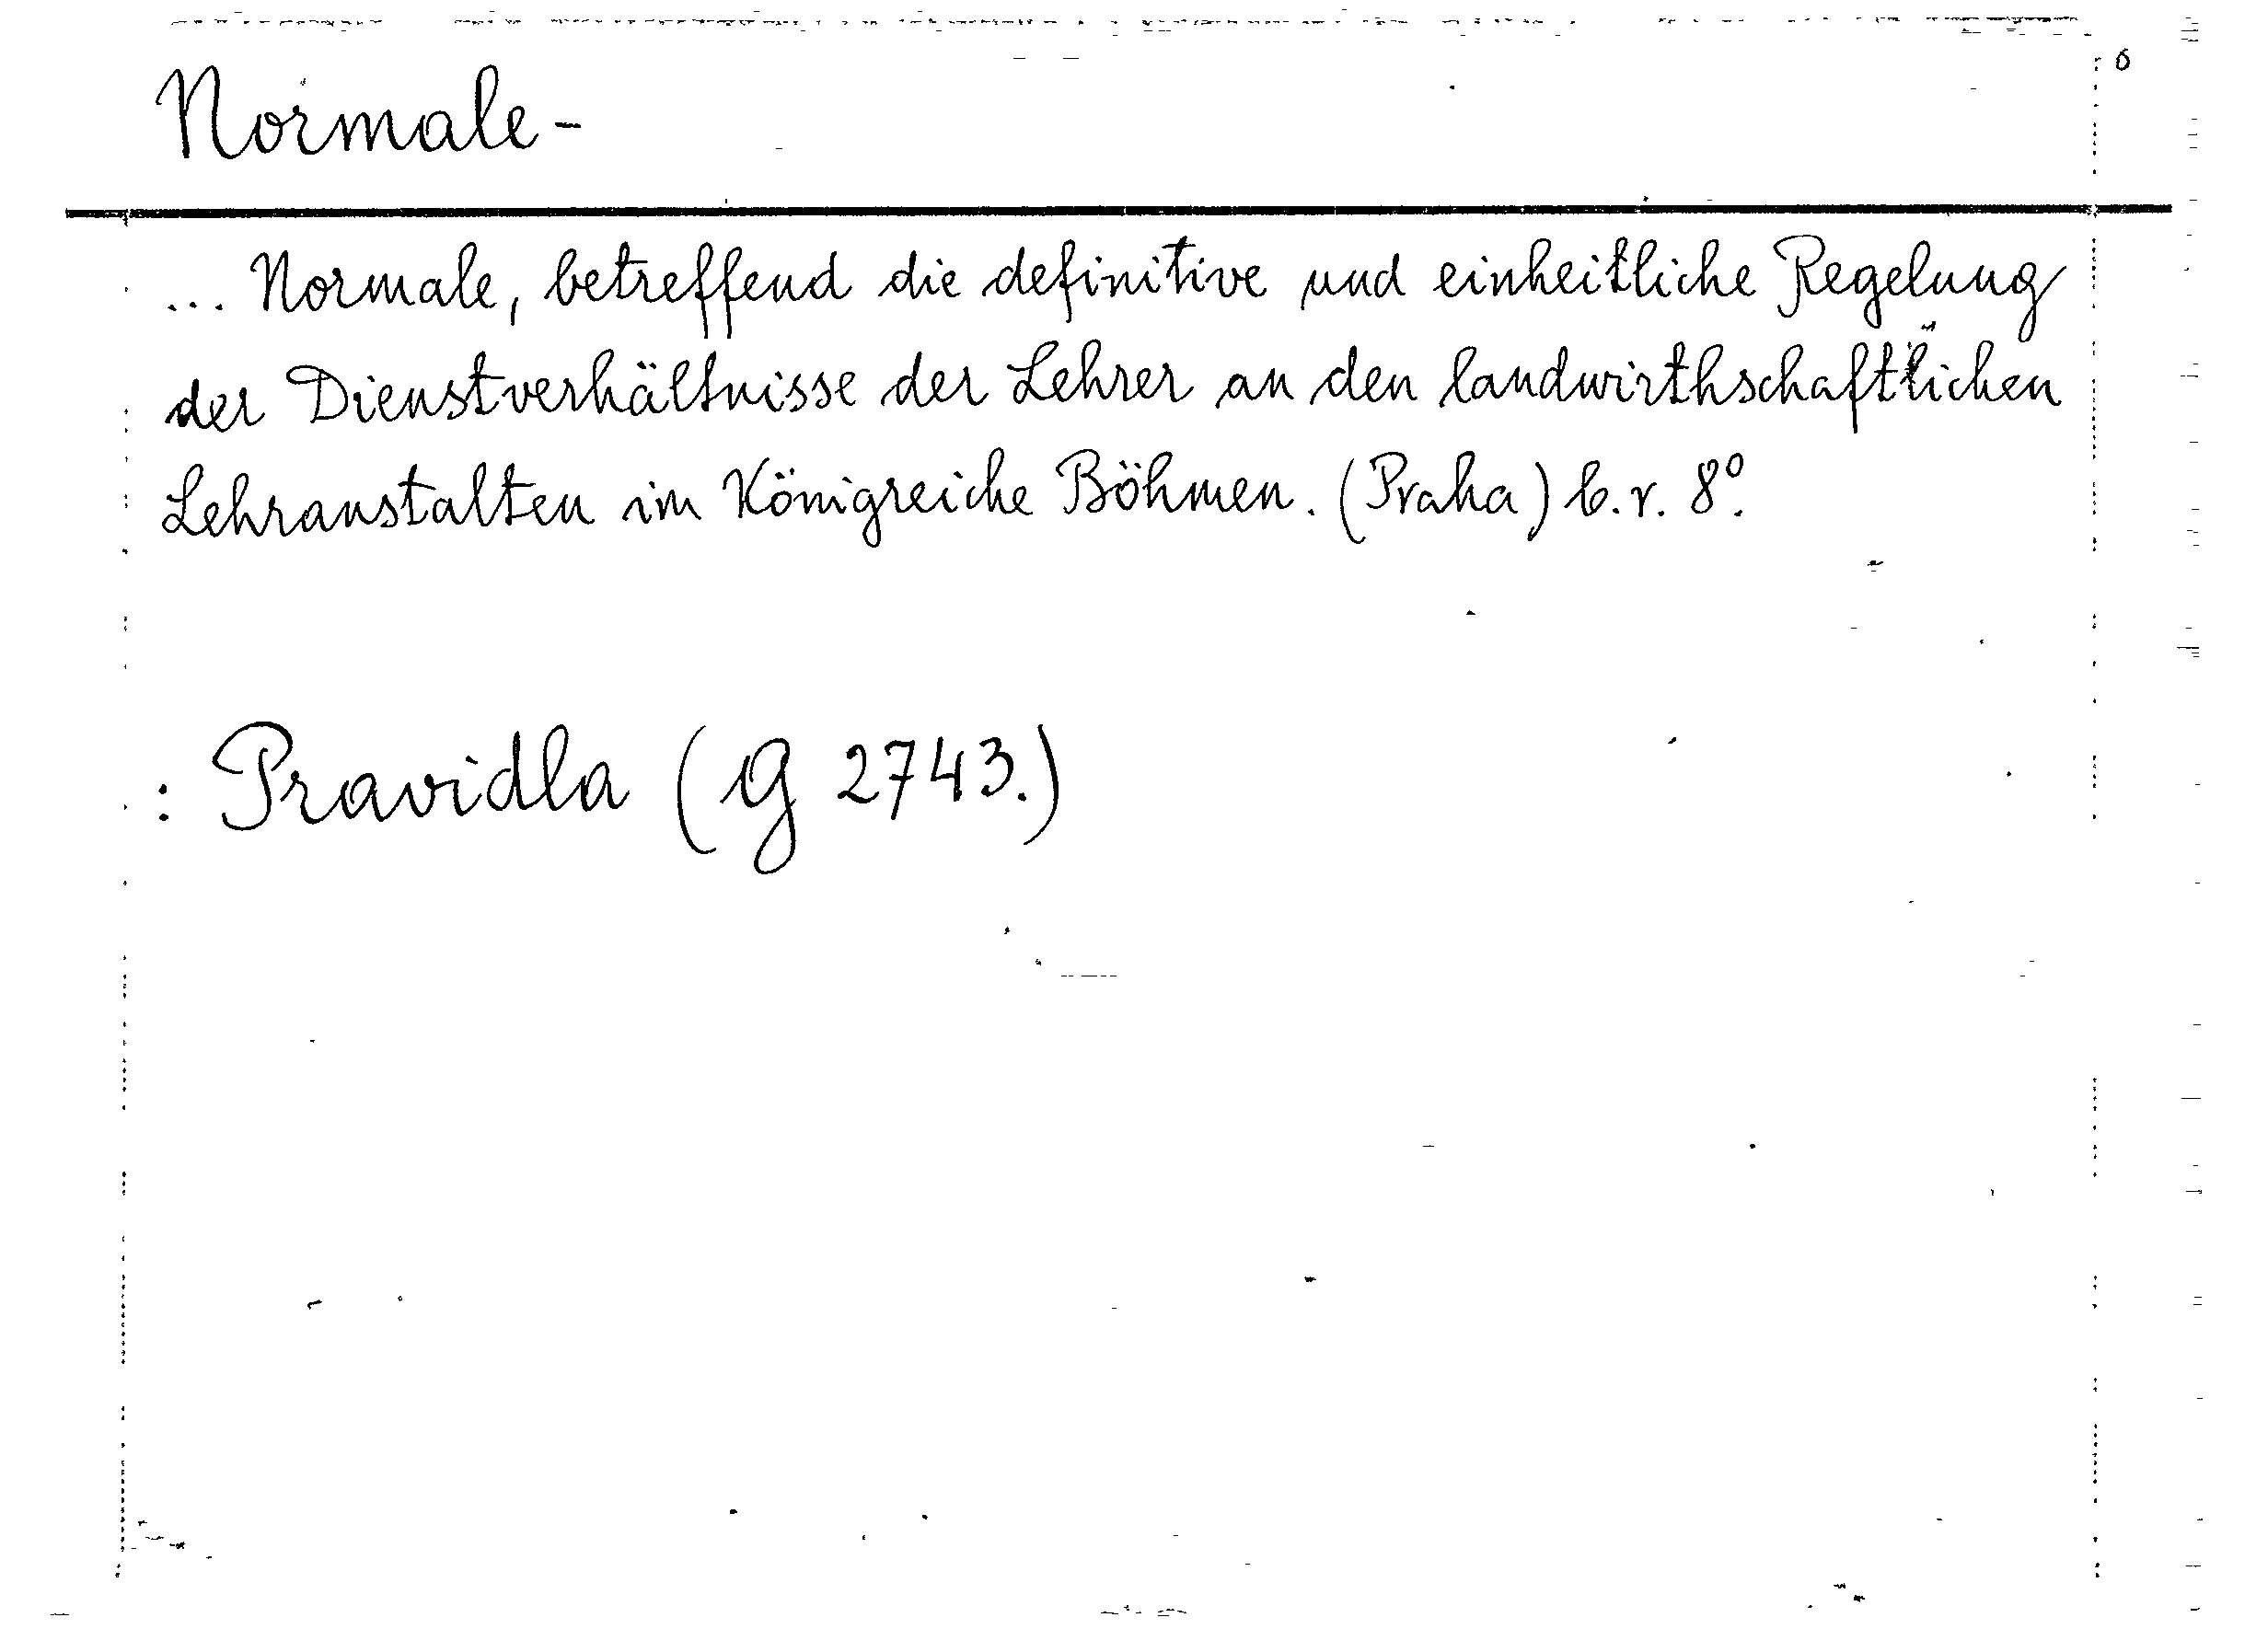 6
Normale-
... Normale, betreffend die definitive und einheitliche Regelung
der Dienstverhältnisse der Lehrer an den landwirthschaftlichen
Lehranstalten im Königreiche Böhmen. (Praha) b. r. 8°.
: Pravidla (G 2743.)